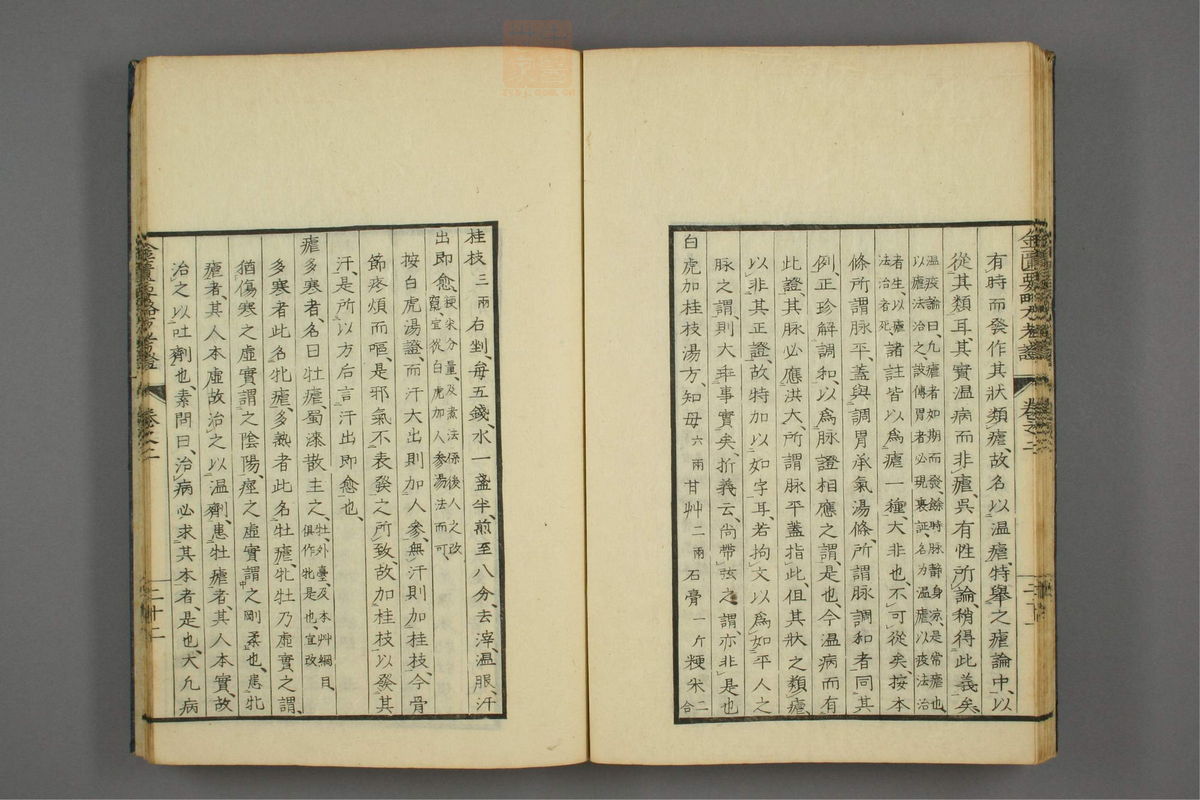 有時而發作其狀類瘧故名以温瘧特舉之瘧論中以
從其類耳其實温病而非瘧吳有性所論稍得此義矣
温疫論曰凡瘧者如期而發餘時脉靜身凉是常瘧也
以瘧法治之設傳胃者必現裏証名为温瘧以疫法治
者生以瘧
法治者死
諸註皆以為瘧一種大非也不可從矣按本
條所謂脉平蓋與調胃承氣湯條所謂脉調和者同其
例正珍解調和以為脉證相應之謂是也今温病而有
此證其脉必應洪大所謂脉平蓋指此但其狀之類瘧
以非其正證故特加以如字耳若拘文以為如平人之
脉之謂則大乖事實矣折義云尚帶弦之謂亦非是也
白虎加桂枝湯方知母六兩甘艸二兩石膏一斤粳米二
合
桂枝三兩右剉每五錢水一盞半煎至八分去滓温服汗
出即愈
粳米分量及煮法係後人之改
竄宜從白虎加人參湯法而可
按白虎湯證而汗大出則加人參無汗則加桂枝今骨
節疼煩而嘔是邪氣不表發之所致故加桂枝以發其
汗是所以方后言汗出即愈也
瘧多寒者名曰牡瘧蜀漆散主之
牡外臺及本艸綱目
俱作牝是也宜改
多寒者此名牝瘧多熱者此名牡瘧牝牡乃虛實之謂
猶傷寒之虛實謂之陰陽痙之虛實謂之剛柔也患牝
瘧者其人本虛故治之以温劑患牡瘧者其人本實故
治之以吐劑也素問曰治病必求其本者是也大凡病
金匱要略方考證
卷之二
二十二